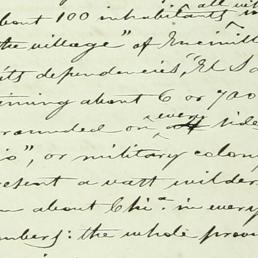 all
about 100 inhabitants
the village" of
its dependencies, "El
about 6 or 700
rounded on every side
or military colony
present a vast wilder
about Chi.ª in every
numbers: the whole prov